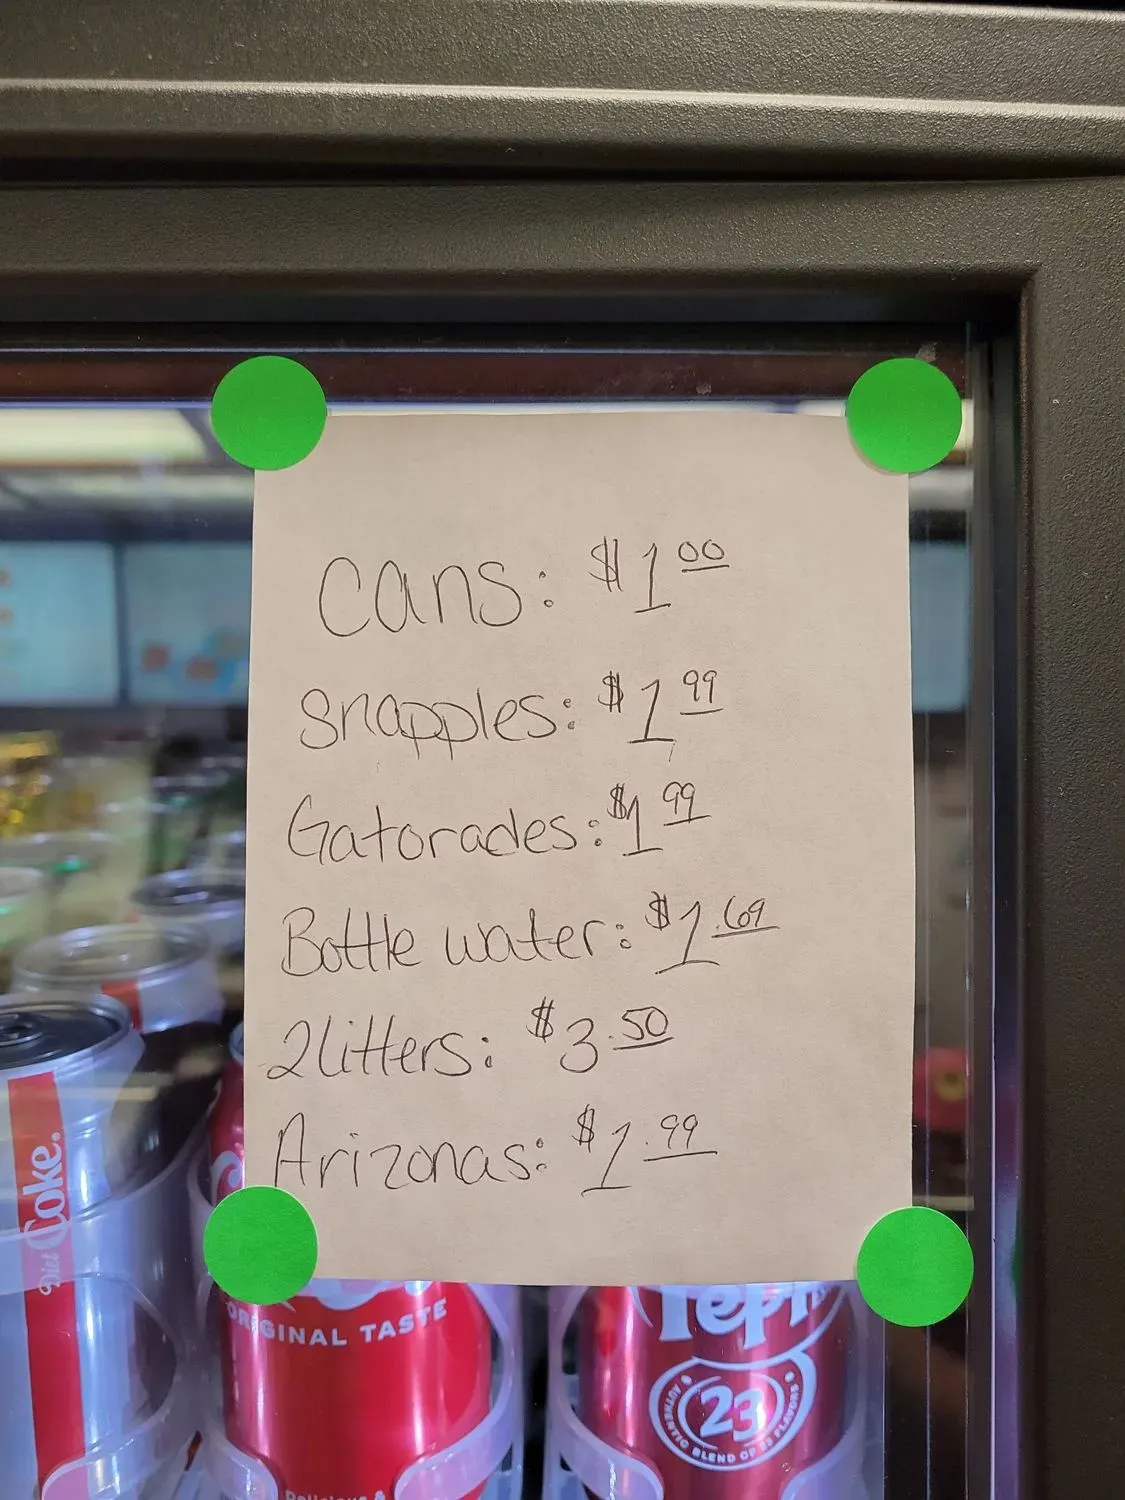 cans: $1.00
snapples: $1.99
Gatorades: $1.99
Bottle water: $1.69
2litters: $3.50
Arizonas: $1.99
Diet Coke.
ORIGINAL TASTE
Delicious &
23
AUTHENTIC BLEND OF 23 FLAVORS